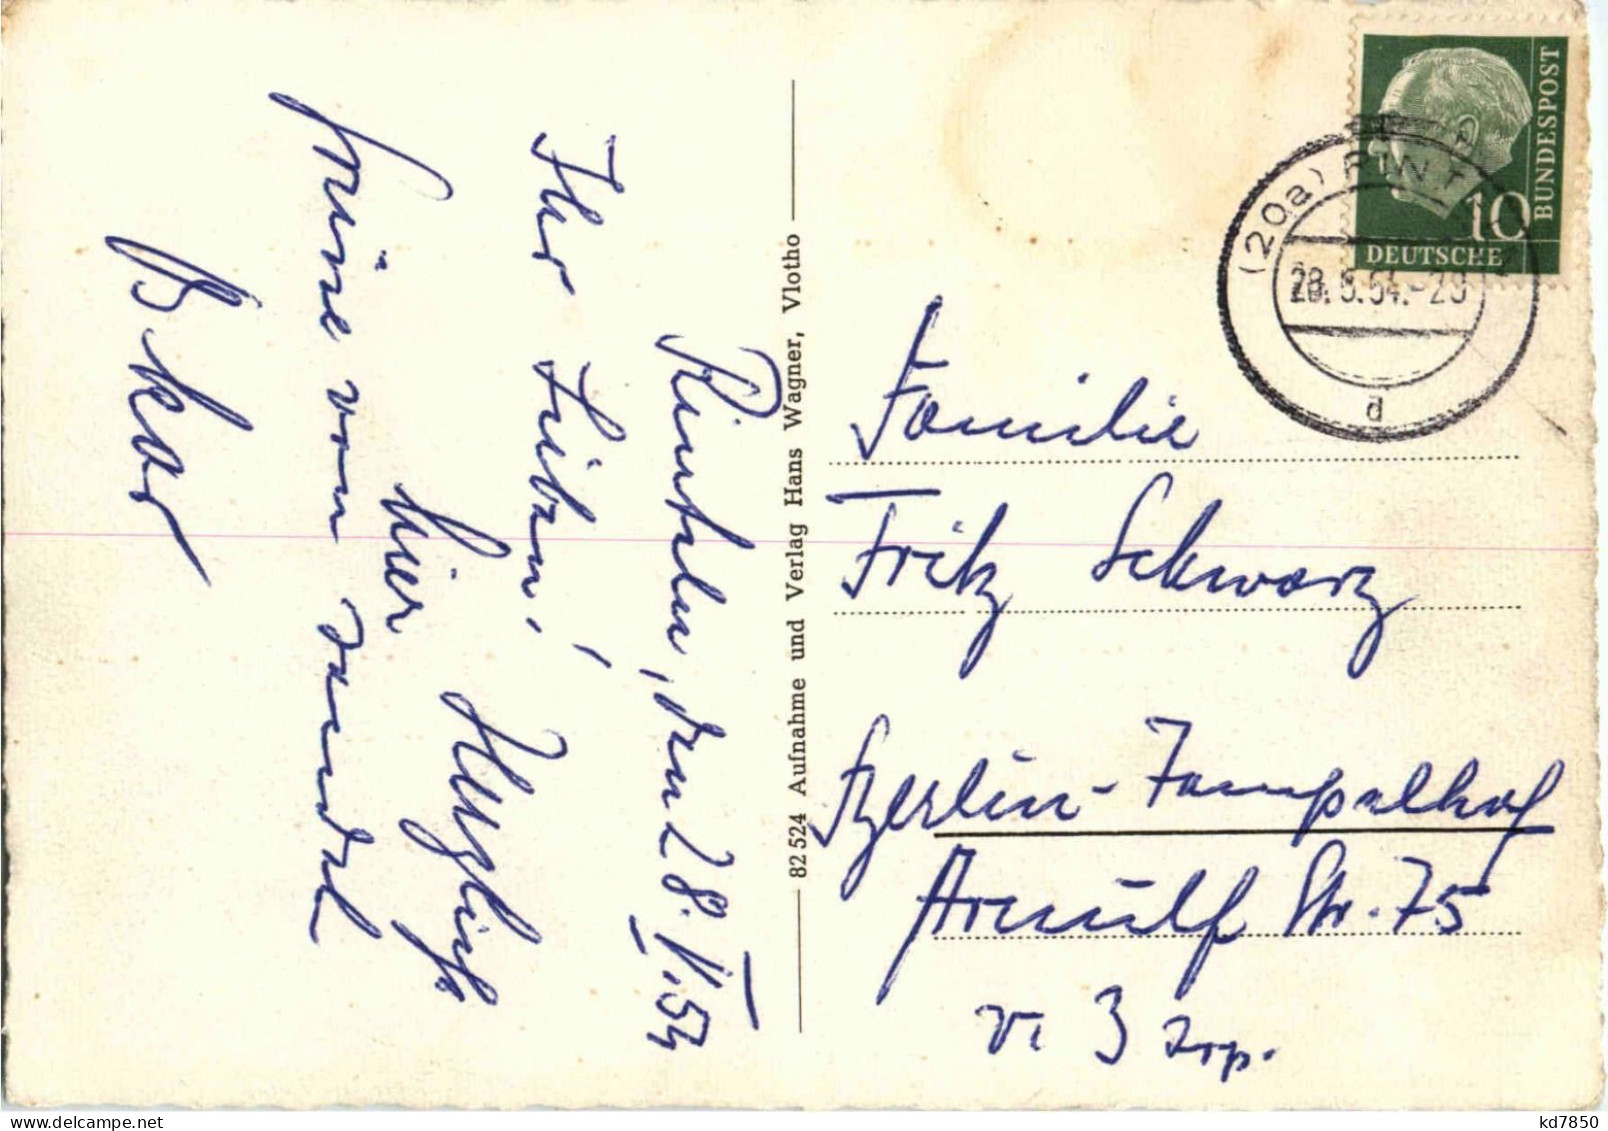 Rinteln, den 28. VI. 54
Ihr Lieben!
Herzlichste
Grüße vom Sandel
hier
Oskar
82 524 Aufnahme und Verlag Hans Wagner, Vlotho
DEUTSCHE
BUNDESPOST
10
(20a)
28. 54.-20
d
Familie
Fritz Schwarz
Berlin-Tempelhof
Arnulf Str. 75
v. 3 Trp.
kd7850